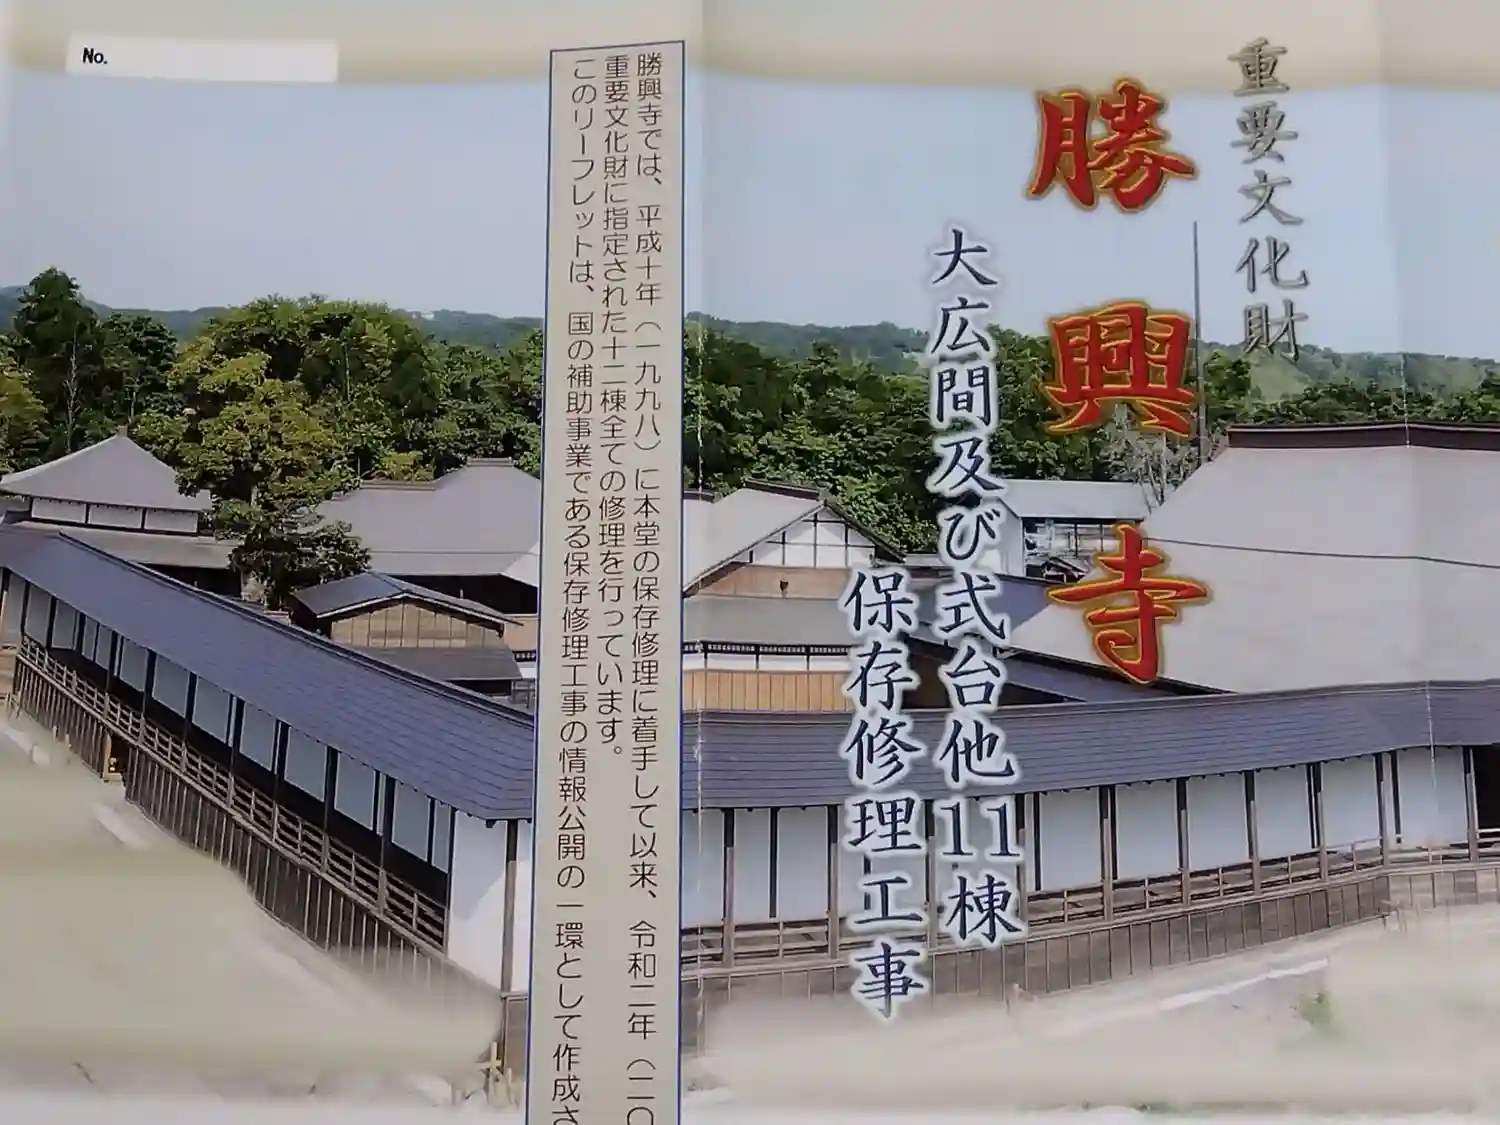 No.
重要文化財
勝興寺
大広間及び式台他11棟
保存修理工事
勝興寺では、平成十年（一九九八）に本堂の保存修理に着手して以来、令和二年（二〇
重要文化財に指定された十二棟全ての修理を行っています。
このリーフレットは、国の補助事業である保存修理工事の情報公開の一環として作成さ